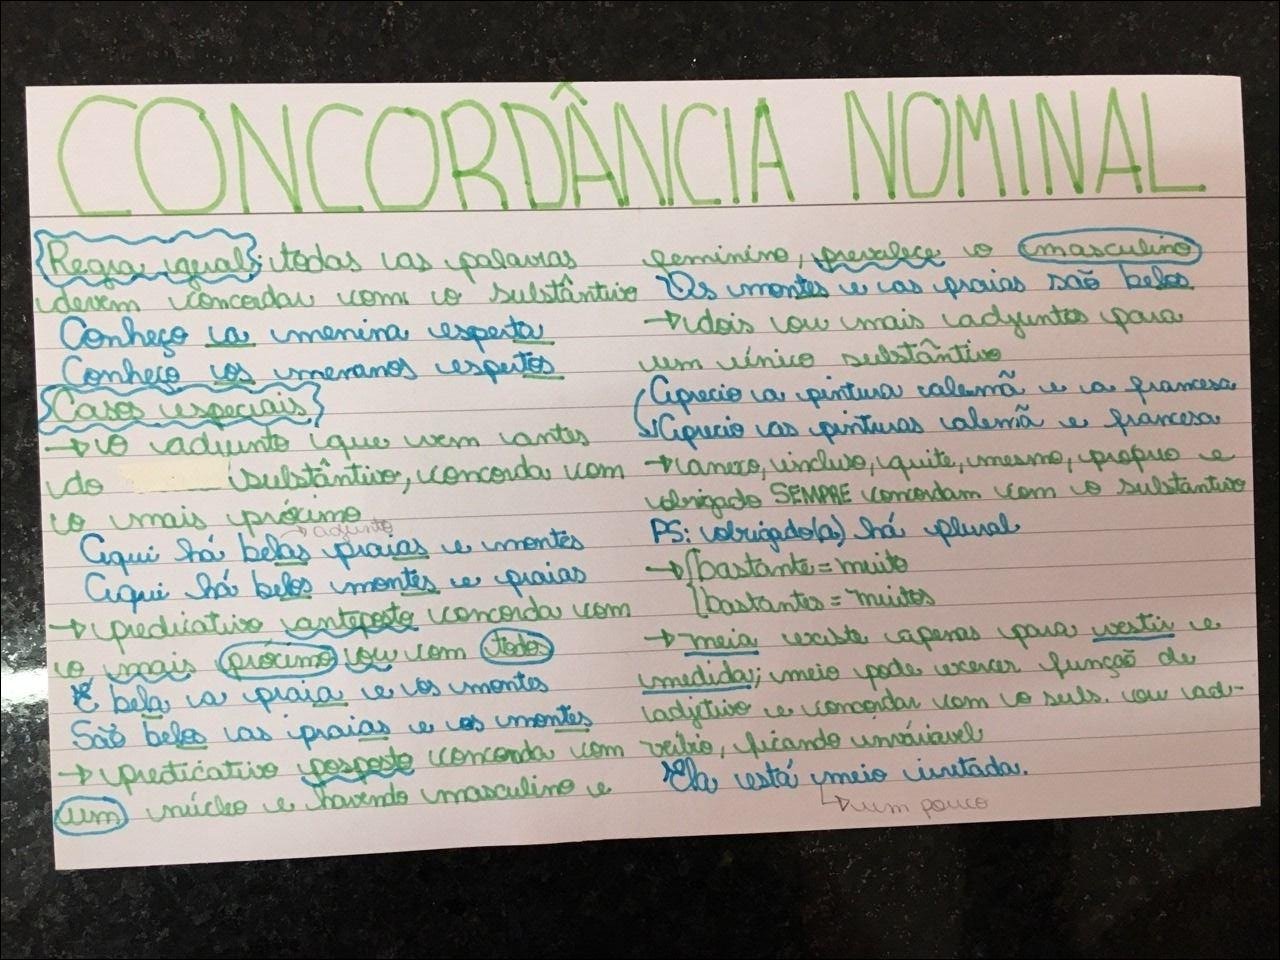 CONCORDÂNCIA NOMINAL
Regra igual: todas as palavras
devem concordar com o substântivo
Conheço a menina esperta
Conheço os meninos espertos
Casos especiais
→ o adjunto que vem antes
do substântivo, concorda com
o mais próximo
→ adjunto
Aqui há belas praias e montes
Aqui há belos montes e praias
→ predicativo anteposto concorda com
o mais próximo ou com todos
É bela a praia e os montes
São belos as praias e os montes
→ predicativo posposto concorda com
um núcleo e havendo masculino e
feminino, prevalece o masculino
Os montes e as praias são belos
→ dois ou mais adjuntos para
um único substântivo
Aprecio a pintura alemã e a francesa
Aprecio as pinturas alemã e francesa
→ anexo, incluso, quite, mesmo, próprio e
obrigado SEMPRE concordam com o substantivo
PS: obrigado(a) há plural
→ bastante = muito
bastantes = muitos
→ meia existe apenas para vestir e
medida; meio pode exercer função de
adjetivo e concordar com o subs. ou ad-
vérbio, ficando inváriavel
Ela está meio irritada.
→ um pouco